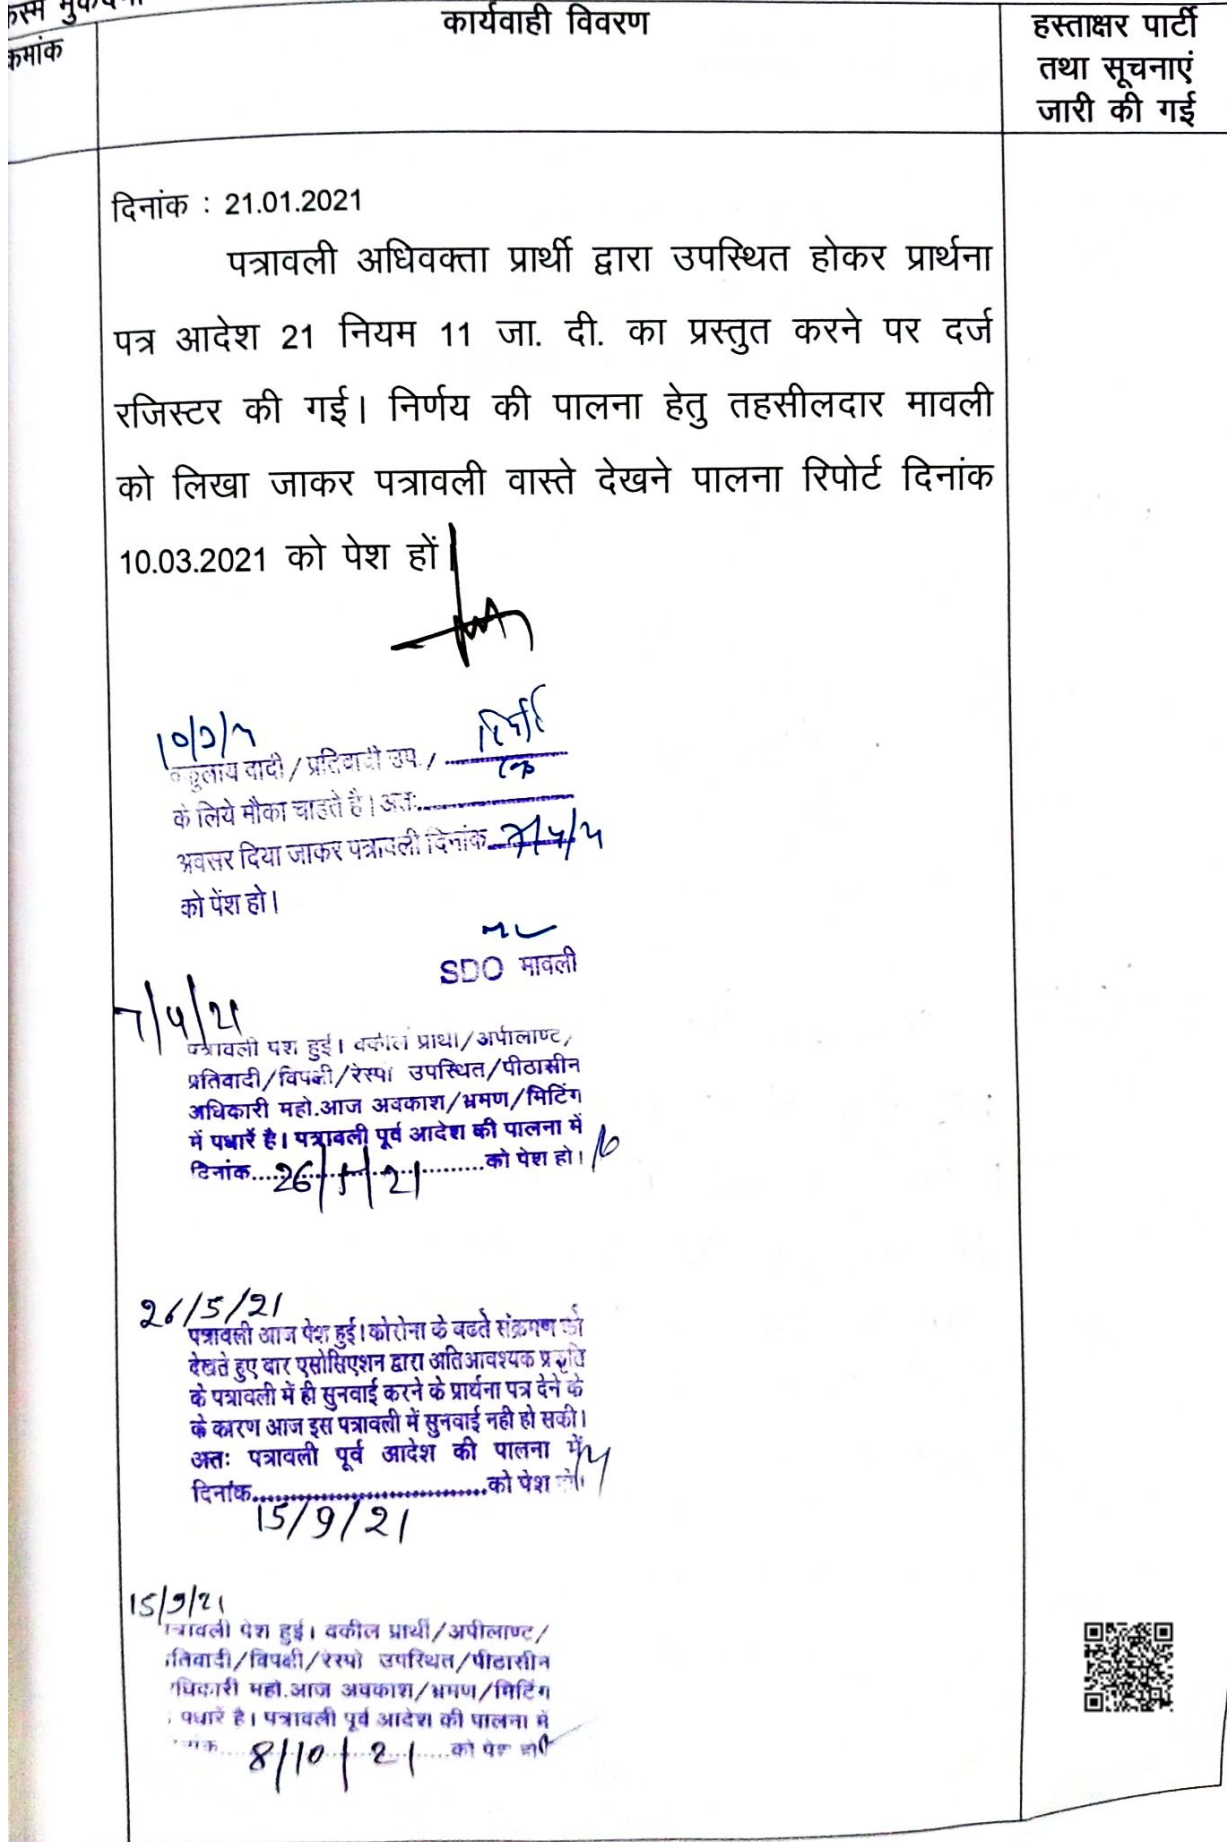 कार्यवाही विवरण
हस्ताक्षर पार्टी
तथा सूचनाएं
जारी की गई
दिनांक : 21.01.2021
पत्रावली अधिवक्ता प्रार्थी द्वारा उपस्थित होकर प्रार्थना
पत्र आदेश 21 नियम 11 जा. दी. का प्रस्तुत करने पर दर्ज
रजिस्टर की गई। निर्णय की पालना हेतु तहसीलदार मावली
को लिखा जाकर पत्रावली वास्ते देखने पालना रिपोर्ट दिनांक
10.03.2021 को पेश हों
वादी / प्रतिवादी उप. /
के लिये मौका चाहते है। अतः
अवसर दिया जाकर पत्रावली दिनांक
को पेंश हो।
SDO मावली
7/4/21
पत्रावली पेश हुई। वकील प्रार्थी/अपीलाण्ट/
प्रतिवादी/विपक्षी/रेस्पो उपस्थित/पीठासीन
अधिकारी महो.आज अवकाश/भ्रमण/मिटिंग
में पधारें है। पत्रावली पूर्व आदेश की पालना में
दिनांक.....26/5/21.....को पेश हो।
26/5/21
पत्रावली आज पेश हुई। कोरोना के बढते संक्रमण को
देखते हुए बार एसोसिएशन द्वारा अतिआवश्यक प्रकृति
के पत्रावली में ही सुनवाई करने के प्रार्थना पत्र देने के
के कारण आज इस पत्रावली में सुनवाई नही हो सकी।
अतः पत्रावली पूर्व आदेश की पालना में
दिनांक..............................को पेश हो।
15/9/21
15/9/21
पत्रावली पेश हुई। वकील प्रार्थी/अपीलाण्ट/
तिवादी/विपक्षी/रेस्पो उपस्थित/पीठासीन
धिकारी महो.आज अवकाश/भ्रमण/मिटिंग
पधारें है। पत्रावली पूर्व आदेश की पालना में
8/10/21 .....को पेश हो